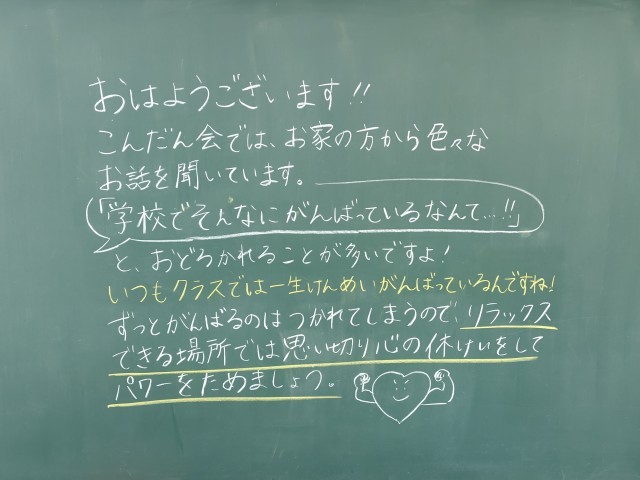 おはようございます!!
こんだん会では、お家の方から色々な
お話を聞いています。
「学校でそんなにがんばっているなんて…!!」
と、おどろかれることが多いですよ!
いつもクラスでは一生けんめいがんばっているんですね!
ずっとがんばるのはつかれてしまうので、リラックス
できる場所では思い切り心の休けいをして
パワーをためましょう。